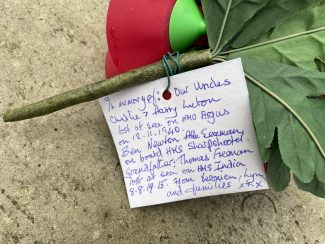 In memory of: Our Uncles
Charlie & Harry Luxton
lost at sea on HMS Argus
on 12.11.1940
Ben Newton Able Seaman
on board HMS Sharpshooter
Grandfather: Thomas Freeman
lost at sea on HMS India
8.8.1915. From Maureen, Lynn
and families x R x